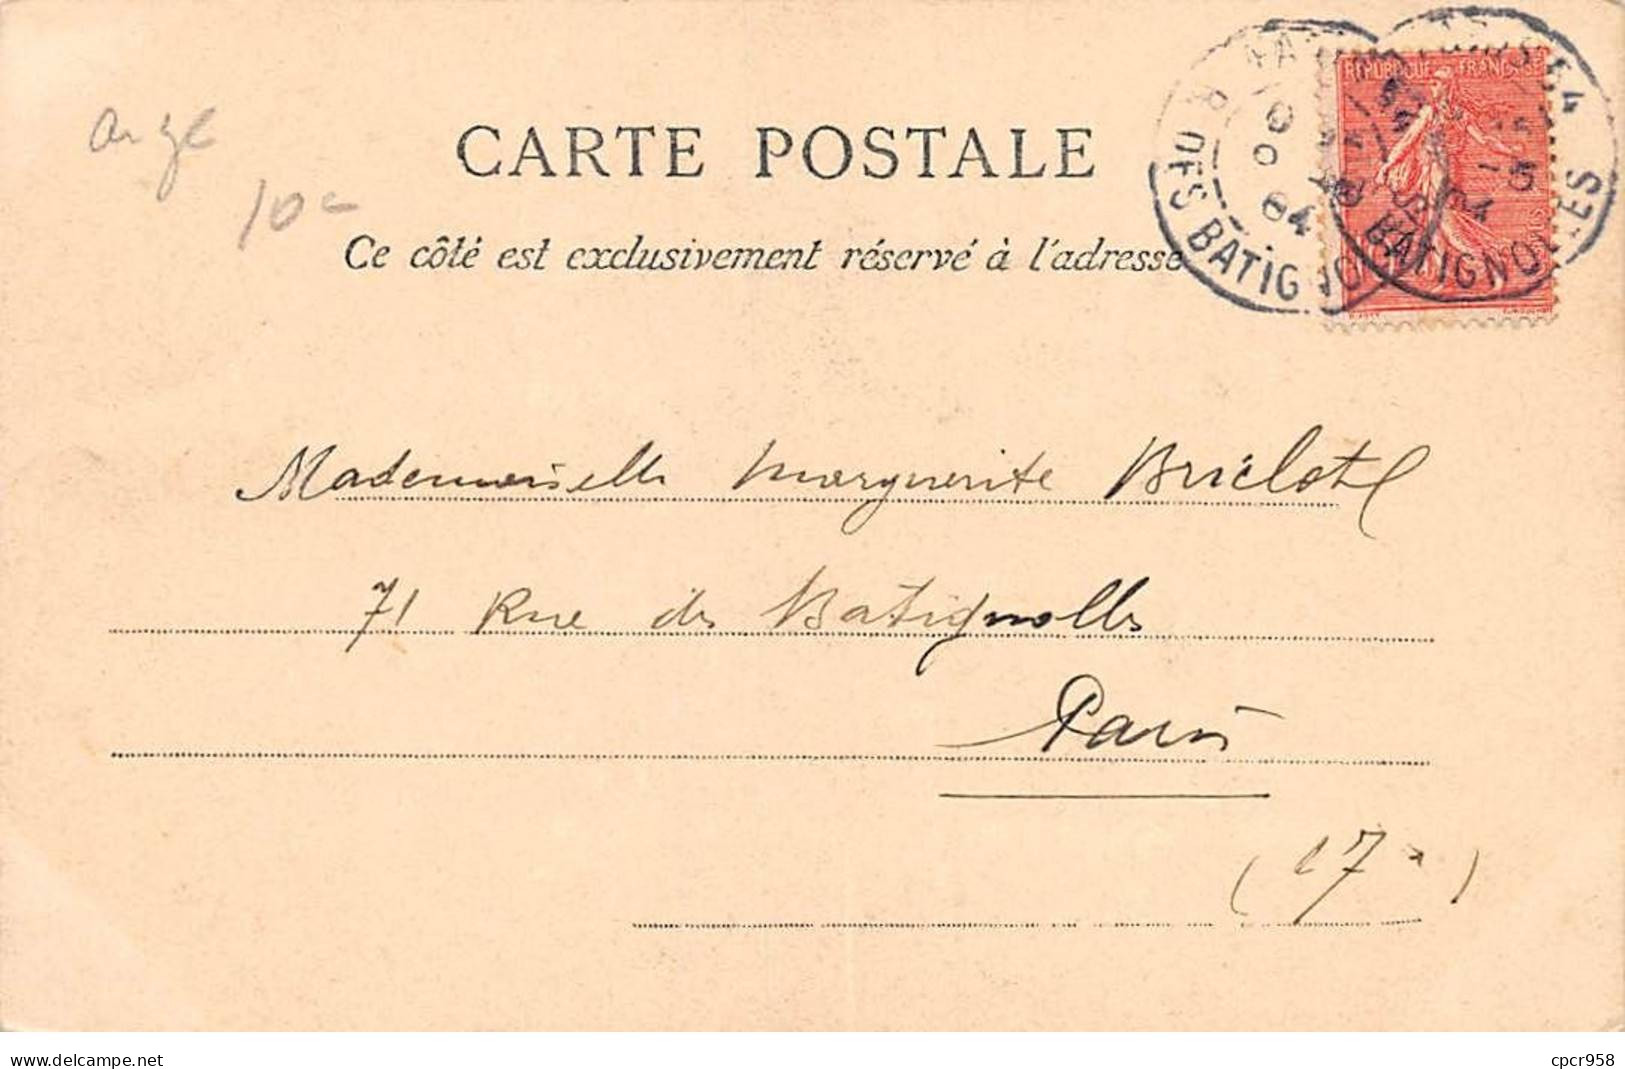 Ange
10 c
CARTE POSTALE
Ce côté est exclusivement réservé à l'adresse
REPUBLIQUE FRANÇAISE
R. DES BATIGNOLLES
04
BATIGNOLLES
04
Mademoiselle Marguerite Briclot
71 Rue des Batignolles
Paris
(17e)
delcampe.net
cpcr958